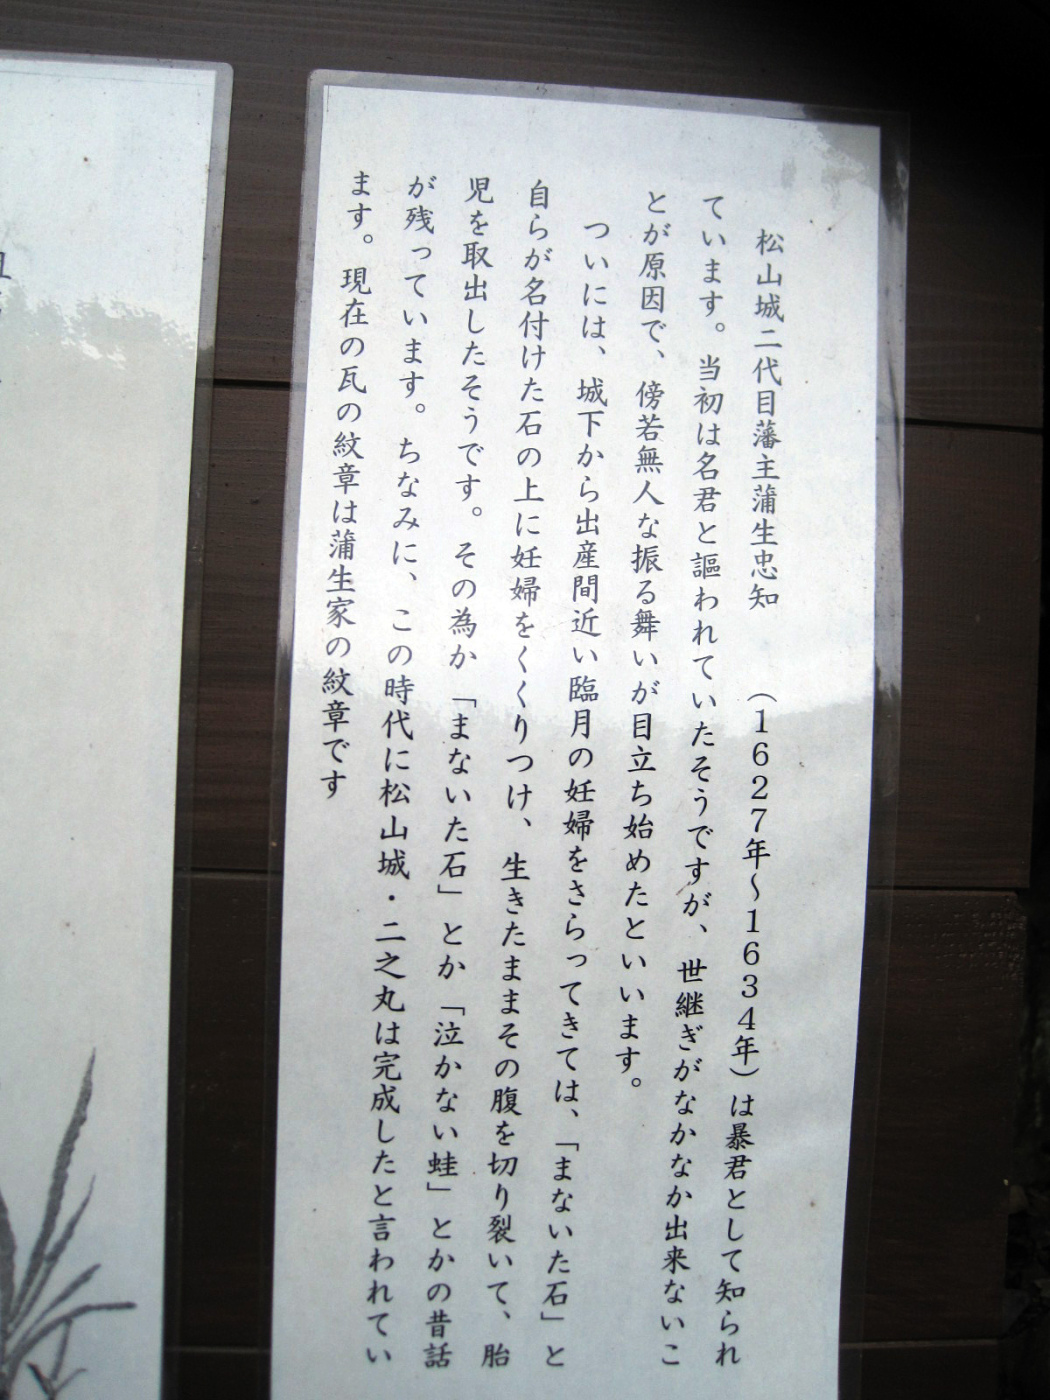 松山城二代目藩主蒲生忠知　（1627年～1634年）は暴君として知られ
ています。当初は名君と謳われていたそうですが、世継ぎがなかなか出来ないこ
とが原因で、傍若無人な振る舞いが目立ち始めたといいます。
ついには、城下から出産間近い臨月の妊婦をさらってきては、「まないた石」と
自らが名付けた石の上に妊婦をくくりつけ、生きたままその腹を切り裂いて、胎
児を取出したそうです。その為か「まないた石」とか「泣かない蛙」とかの昔話
が残っています。ちなみに、この時代に松山城・二之丸は完成したと言われてい
ます。現在の瓦の紋章は蒲生家の紋章です